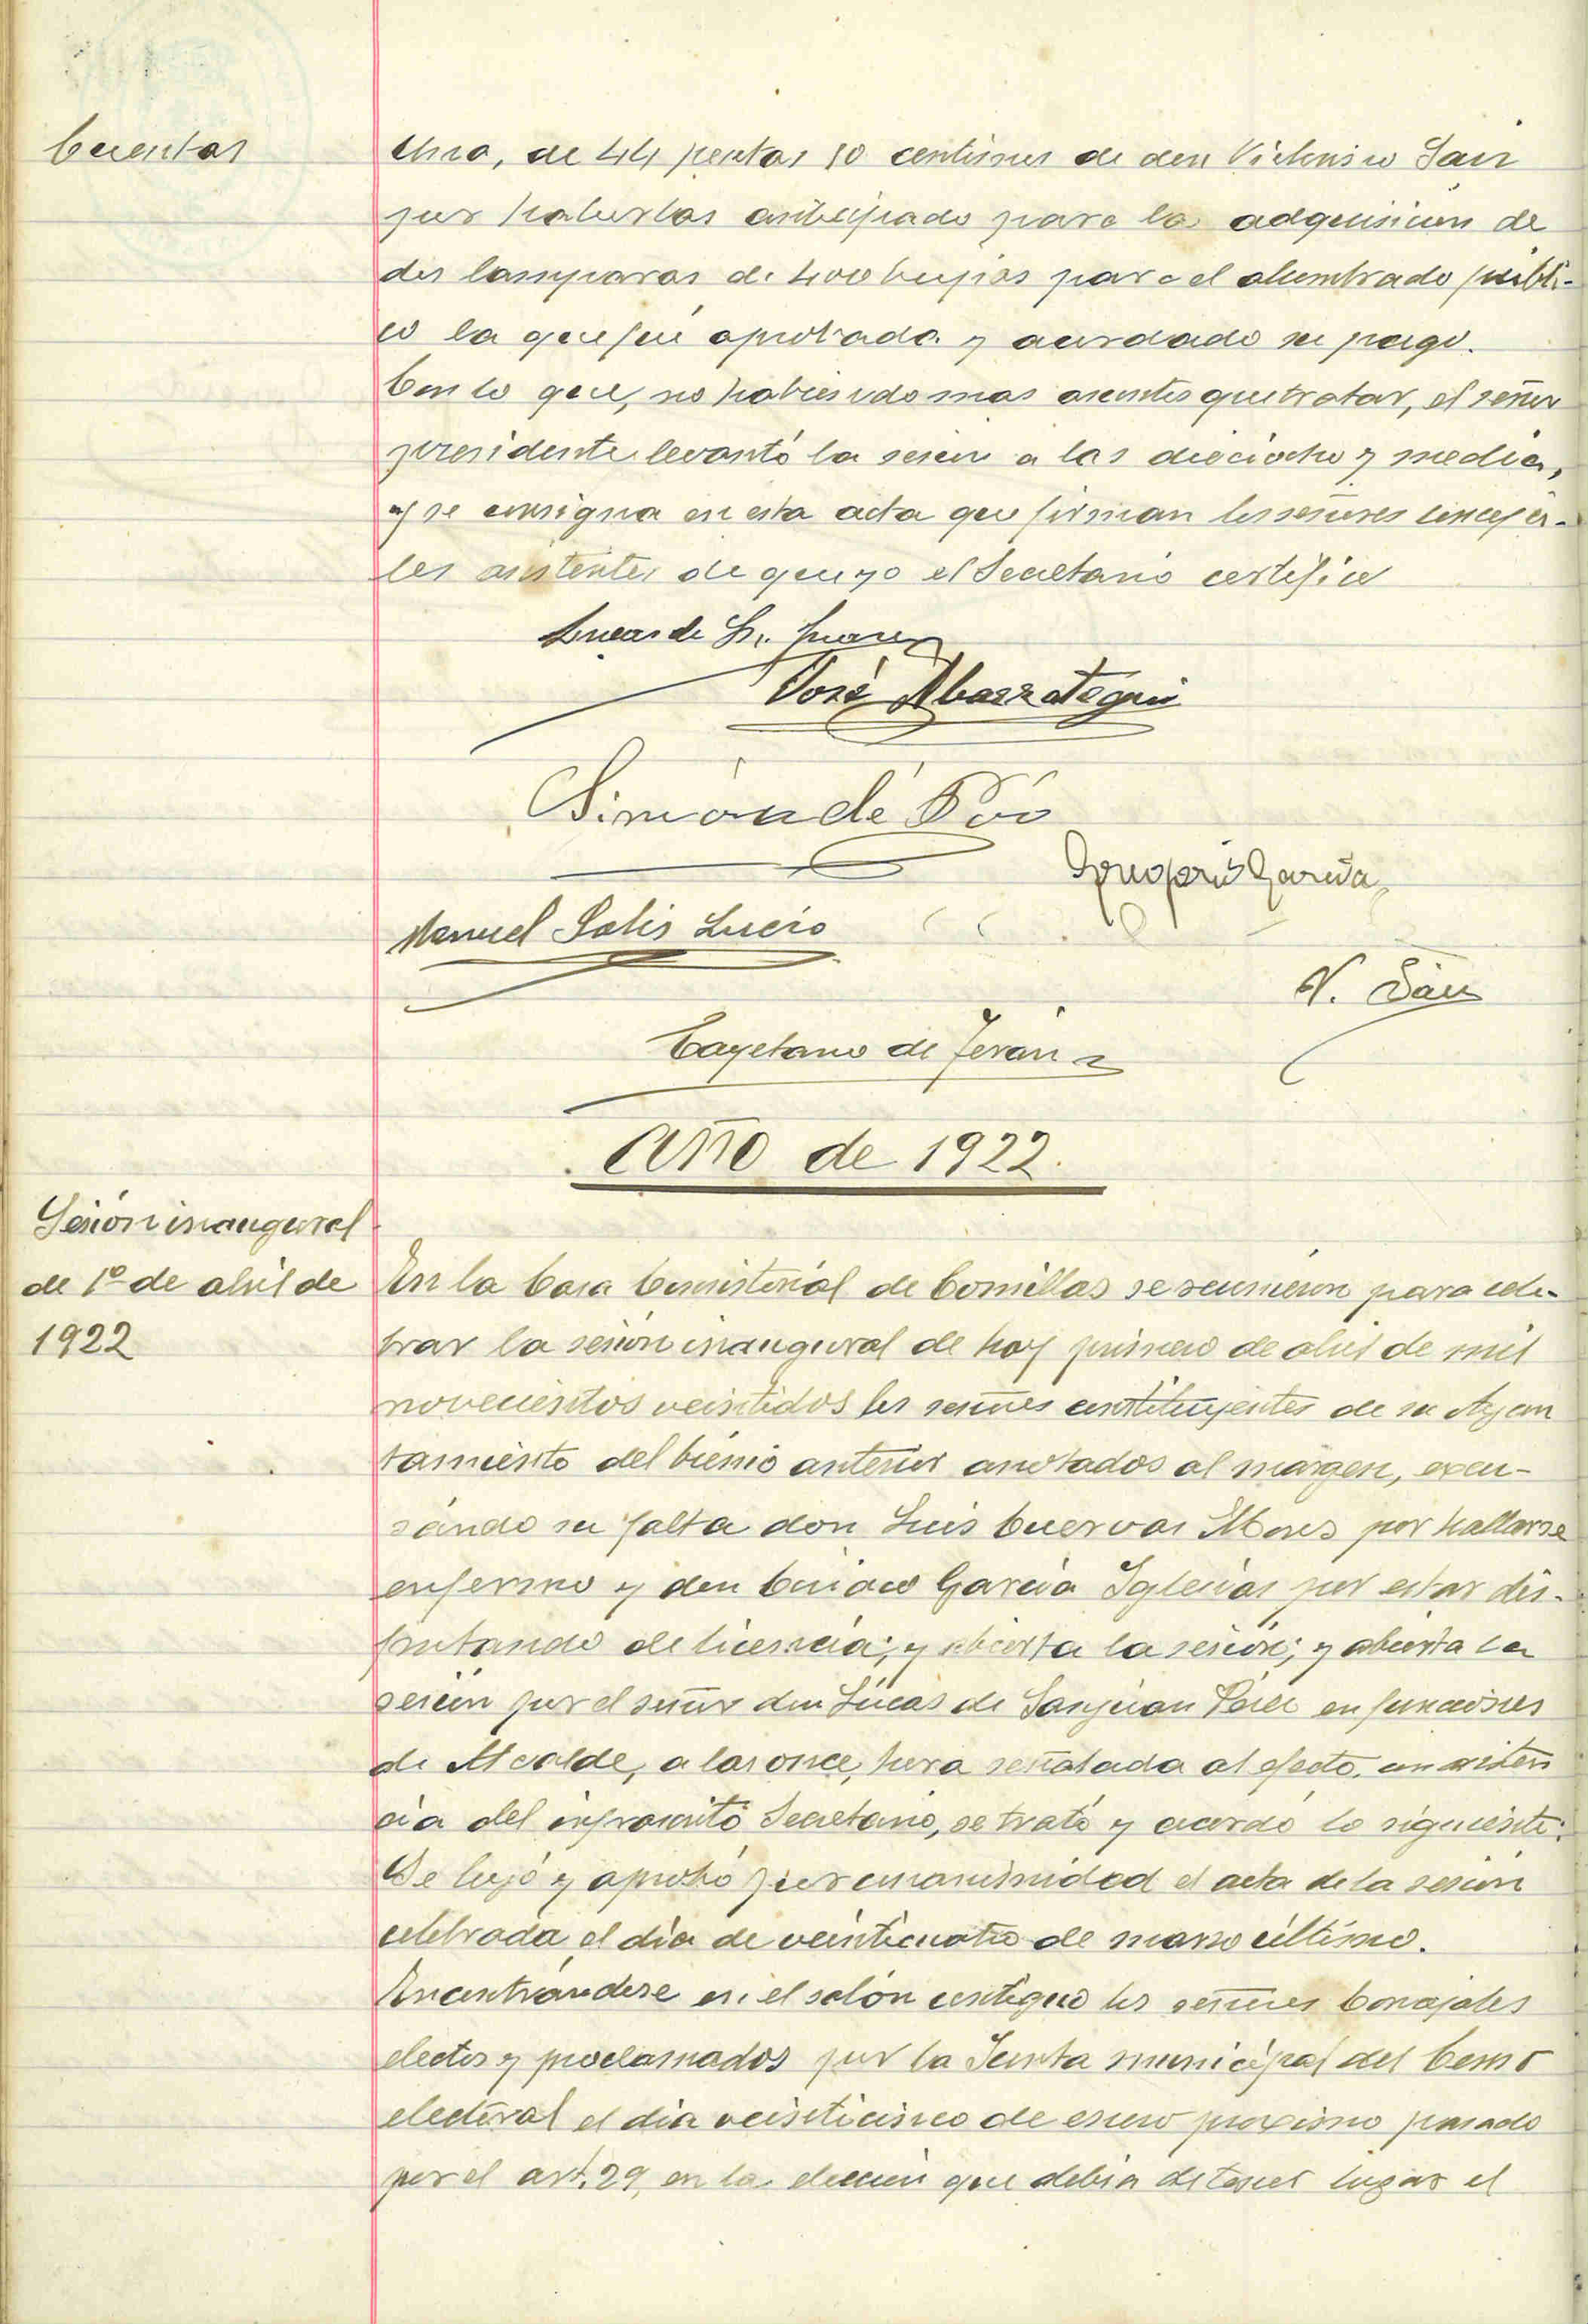 Cuentas
Una, de 44 pesetas 10 centimos de don Victorino Sainz
por haberlas anticipado para la adquisicion de
dos lamparas de 400 bujias para el alumbrado públi-
co la que fué aprobada y acordado su pago.
Con lo que, no habiendo mas asuntos que tratar, el señor
presidente levantó la sesion a las dieciocho y media,
y se consigna en esta acta que firman los señores conceja-
les asistentes de que yo el Secretario certifico
Lucas de
José Abarrategui
Simón de Póo
Gregorio García
Manuel Solis Lucio
V. Sainz
Cayetano de Terán
Año de 1922.
Sesión inaugural
de 1º de abril de
1922
En la Casa Consistorial de Comillas se reunieron para cele-
brar la sesion inaugural de hoy primero de abril de mil
novecientos veintidos los señores constituyentes de su Ayun
tamiento del bienio anterior anotados al margen, excu-
sando su falta don Luis Cuervas Mons por hallarse
enfermo y don Ciriaco García Iglesias por estar dis-
frutando de licencia; y abierta la sesion; y abierta la
sesion por el señor don Lucas de Sanjuan Pérez en funciones
de Alcalde, a las once, hora señalada al efecto, con asisten
cia del infrascrito Secretario, se trató y acordó lo siguiente:
Se leyó y aprobó por unanimidad el acta de la sesion
celebrada el día de veinticuatro de marzo último.
Encontrándose en el salón contiguo los señores Concejales
electos y proclamados por la Junta municipal del Censo
electoral el dia veinticinco de enero proximo pasado
por el art. 29, en la eleccion que debia de tener lugar el